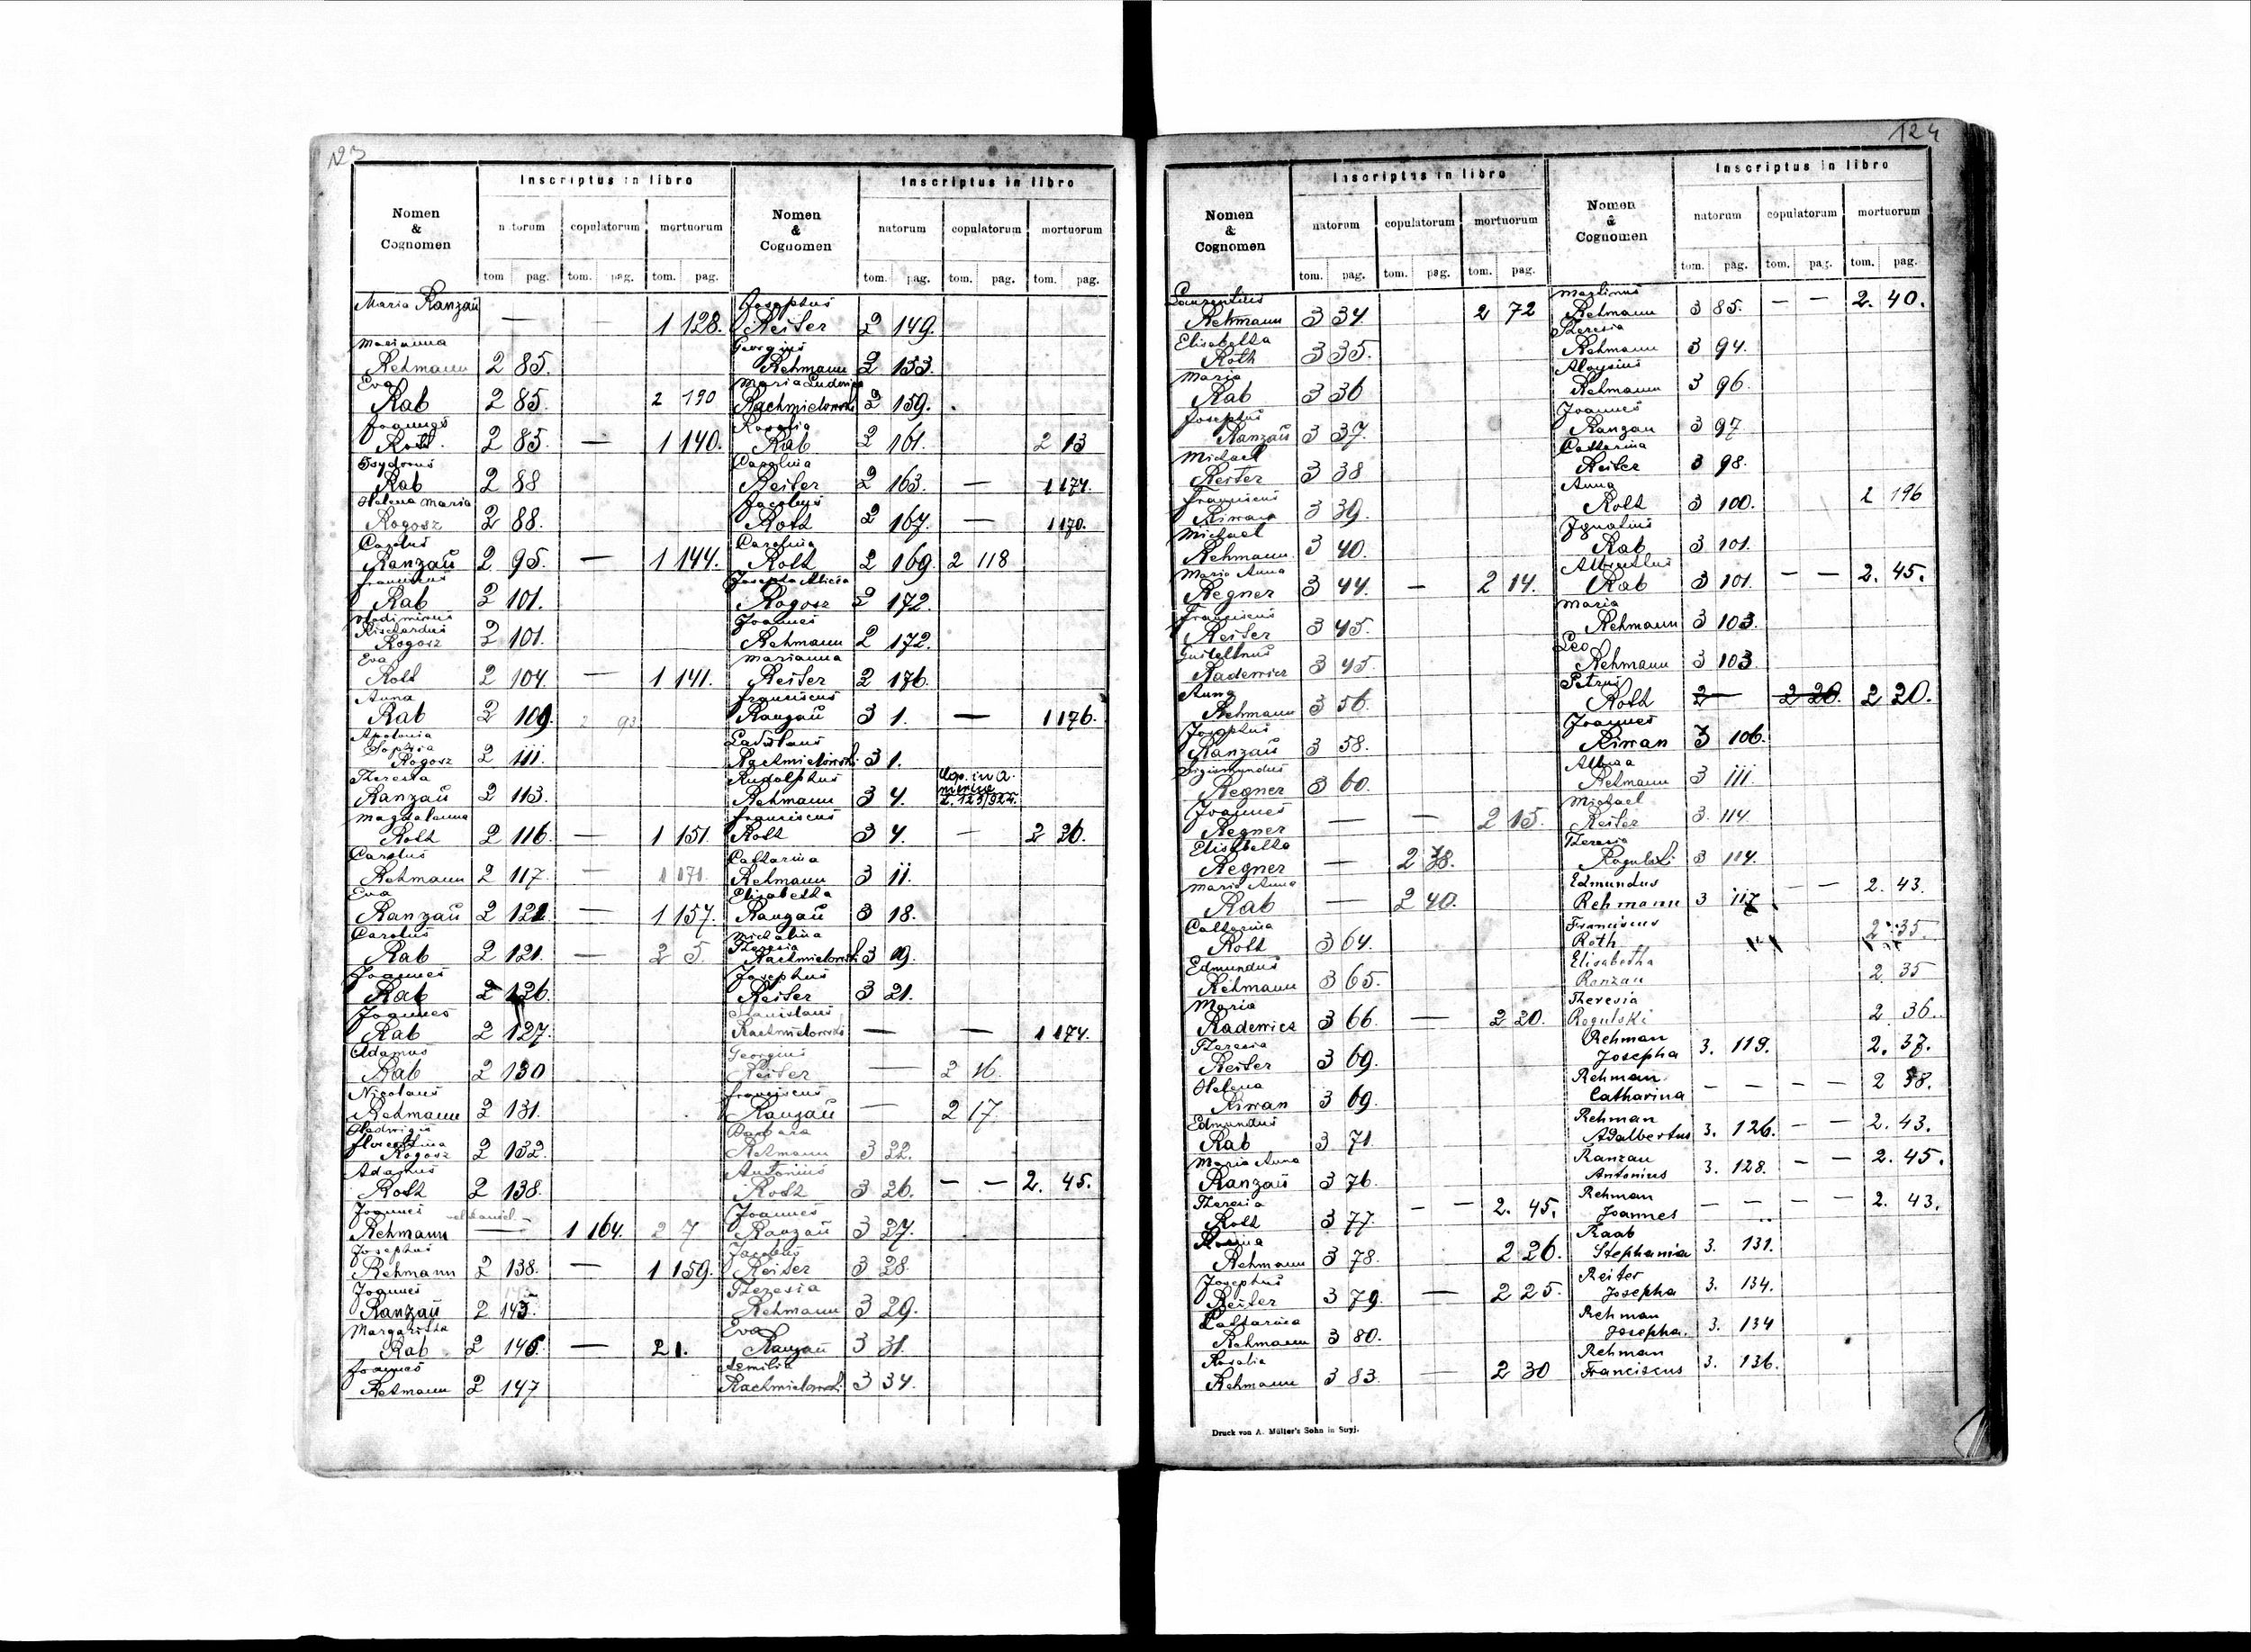 123
Inscriptus in libro
Inscriptus in libro
Nomen & Cognomen
natorum copulatorum mortuorum
Nomen & Cognomen
natorum copulatorum mortuorum
tom pag. tom. pag. tom. pag.
tom. pag. tom. pag. tom. pag.
Maria Ranzaŭ — — 1 128.
Marianna
Rehmann 2 85.
Eva
Rab 2 85. 2 190
Joannes
Roth. 2 85. — 1 140.
Isydorus
Rab 2 88
Helena Maria
Rogosz 2 88.
Carolus
Ranzaŭ 2 95. — 1 144.
Franciscus
Rab 2 101.
Vladimirus
Rischardus
Rogosz 2 101.
Eva
Roth 2 104. — 1 141.
Anna
Rab 2 109. 2 93
Apolonia
Sophia
Rogosz 2 111.
Theresia
Ranzaŭ 2 113.
Magdalenna
Roth 2 116. — 1 151.
Carolus
Rehmann 2 117. — 1 171.
Eva
Ranzaŭ 2 121. — 1 157.
Carolus
Rab 2 121. — 2 5.
Joannes
Rab 2 126.
Joannes
Rab 2 127.
Adamus
Rab 2 130
Nicolaus
Rehmann 2 131.
Hadwigis
Florentina
Rogosz 2 132.
Adamus
Roth 2 138.
Joannes
Rehmann — 1 164. 2 7
Josephus
Rehmann 2 138. — 1 159.
Joannes
Ranzaŭ 2 143.
Margaretha
Rab 2 146. — 2 1.
Joannes
Rehmann 2 147
Josephus
Reiter 2 149.
Georgius
Rehmann 2 153.
Maria Ludovica
Rachmielowski 2 159.
Rosalia
Rab 2 161. 2 13
Carolina
Reiter 2 163. — 1 174.
Jacobus
Roth 2 167. — 1 170.
Carolina
Roth 2 169. 2 118
Josepha Alicia
Rogosz 2 172.
Joannes
Rehmann 2 172.
Marianna
Reiter 2 176.
Franciscus
Ranzaŭ 3 1. — 1 176.
Ladislaus
Rachmielowski 3 1.
Rudolphus
Rehmann 3 4.
Franciscus
Roth 3 4. — 2 26.
Catharina
Rehmann 3 11.
Elisabetha
Ranzaŭ 3 18.
Michalina
Theresia
Rachmielowski 3 19.
Josephus
Reiter 3 21.
Stanislaus
Rachmielowski — — 1 174.
Georgius
Reiter — 2 16.
Franciscus
Ranzaŭ — 2 17.
Barbara
Rehmann 3 22.
Antonius
Roth 3 26. — — 2. 45.
Joannes
Ranzaŭ 3 27.
Jacobus
Reiter 3 28.
Theresia
Rehmann 3 29.
Eva
Ranzaŭ 3 31.
Aemilia
Rachmielowski 3 34.
124
Inscriptus in libro
Inscriptus in libro
Nomen & Cognomen
natorum copulatorum mortuorum
Nomen & Cognomen
natorum copulatorum mortuorum
tom. pag. tom. pag. tom. pag.
tom. pag. tom. pag. tom. pag.
Laurentius
Rehmann 3 34. 2 72
Elisabetha
Roth 3 35.
Maria
Rab 3 36
Josephus
Ranzaŭ 3 37.
Michael
Reiter 3 38
Franciscus
Kirwan 3 39.
Michael
Rehmann. 3 40.
Maria Anna
Regner 3 44. — 2 14.
Franciscus
Reiter 3 45.
Rademicz 3 45.
Anna
Rehmann 3 56.
Josephus
Ranzaŭ 3 58.
Sigismundus
Regner 3 60.
Joannes
Regner — — 2 15.
Elisabetha
Regner — 2 38.
Maria Anna
Rab — 2 40.
Catharina
Roth 3 64.
Edmundus
Rehmann 3 65.
Maria
Rademicz 3 66. — 2 20.
Theresia
Reiter 3 69.
Helena
Kirwan 3 69.
Edmundus
Rab 3 71.
Maria Anna
Ranzaŭ 3 76.
Theresia
Roth 3 77. — — 2. 45.
Rosina
Rehmann 3 78. 2 26.
Josephus
Reiter 3 79. — 2 25.
Catharina
Rehmann 3 80.
Rosalia
Rehmann 3 83. — 2 30
Martinus
Rehmann 3 85. — — 2. 40.
Theresia
Rehmann 3 94.
Aloysius
Rehmann 3 96.
Joannes
Ranzau 3 97
Catharina
Reiter 3 98.
Anna
Roth 3 100. 2 196
Ignatius
Rab 3 101.
Rab 3 101. — — 2. 45.
Maria
Rehmann 3 103.
Leo
Rehmann 3 103.
Petrus
Roth 2 — 2 20. 2 20.
Joannes
Kirwan 3 106.
Albina
Rehmann 3 111.
Michael
Reiter 3. 114.
Theresia
Rogulski 3 114.
Edmundus
Rehmann 3 117 — — 2. 43.
Franciscus
Roth 2 35.
Elisabetha
Ranzau 2. 35
Theresia
Rogulski 2 36.
Rehman
Josepha 3. 119. 2. 37.
Rehman
Catharina — — — — 2 38.
Rehman
Adalbertus 3. 126. — — 2. 43.
Ranzau
Antonius 3. 128. — — 2. 45.
Rehman
Joannes — — — — 2. 43.
Raab
Stephania 3. 131.
Reiter
Josepha 3. 134.
Rehman
Josepha. 3. 134
Rehman
Franciscus 3. 136.
Druck von A. Müller's Sohn in Stryj.